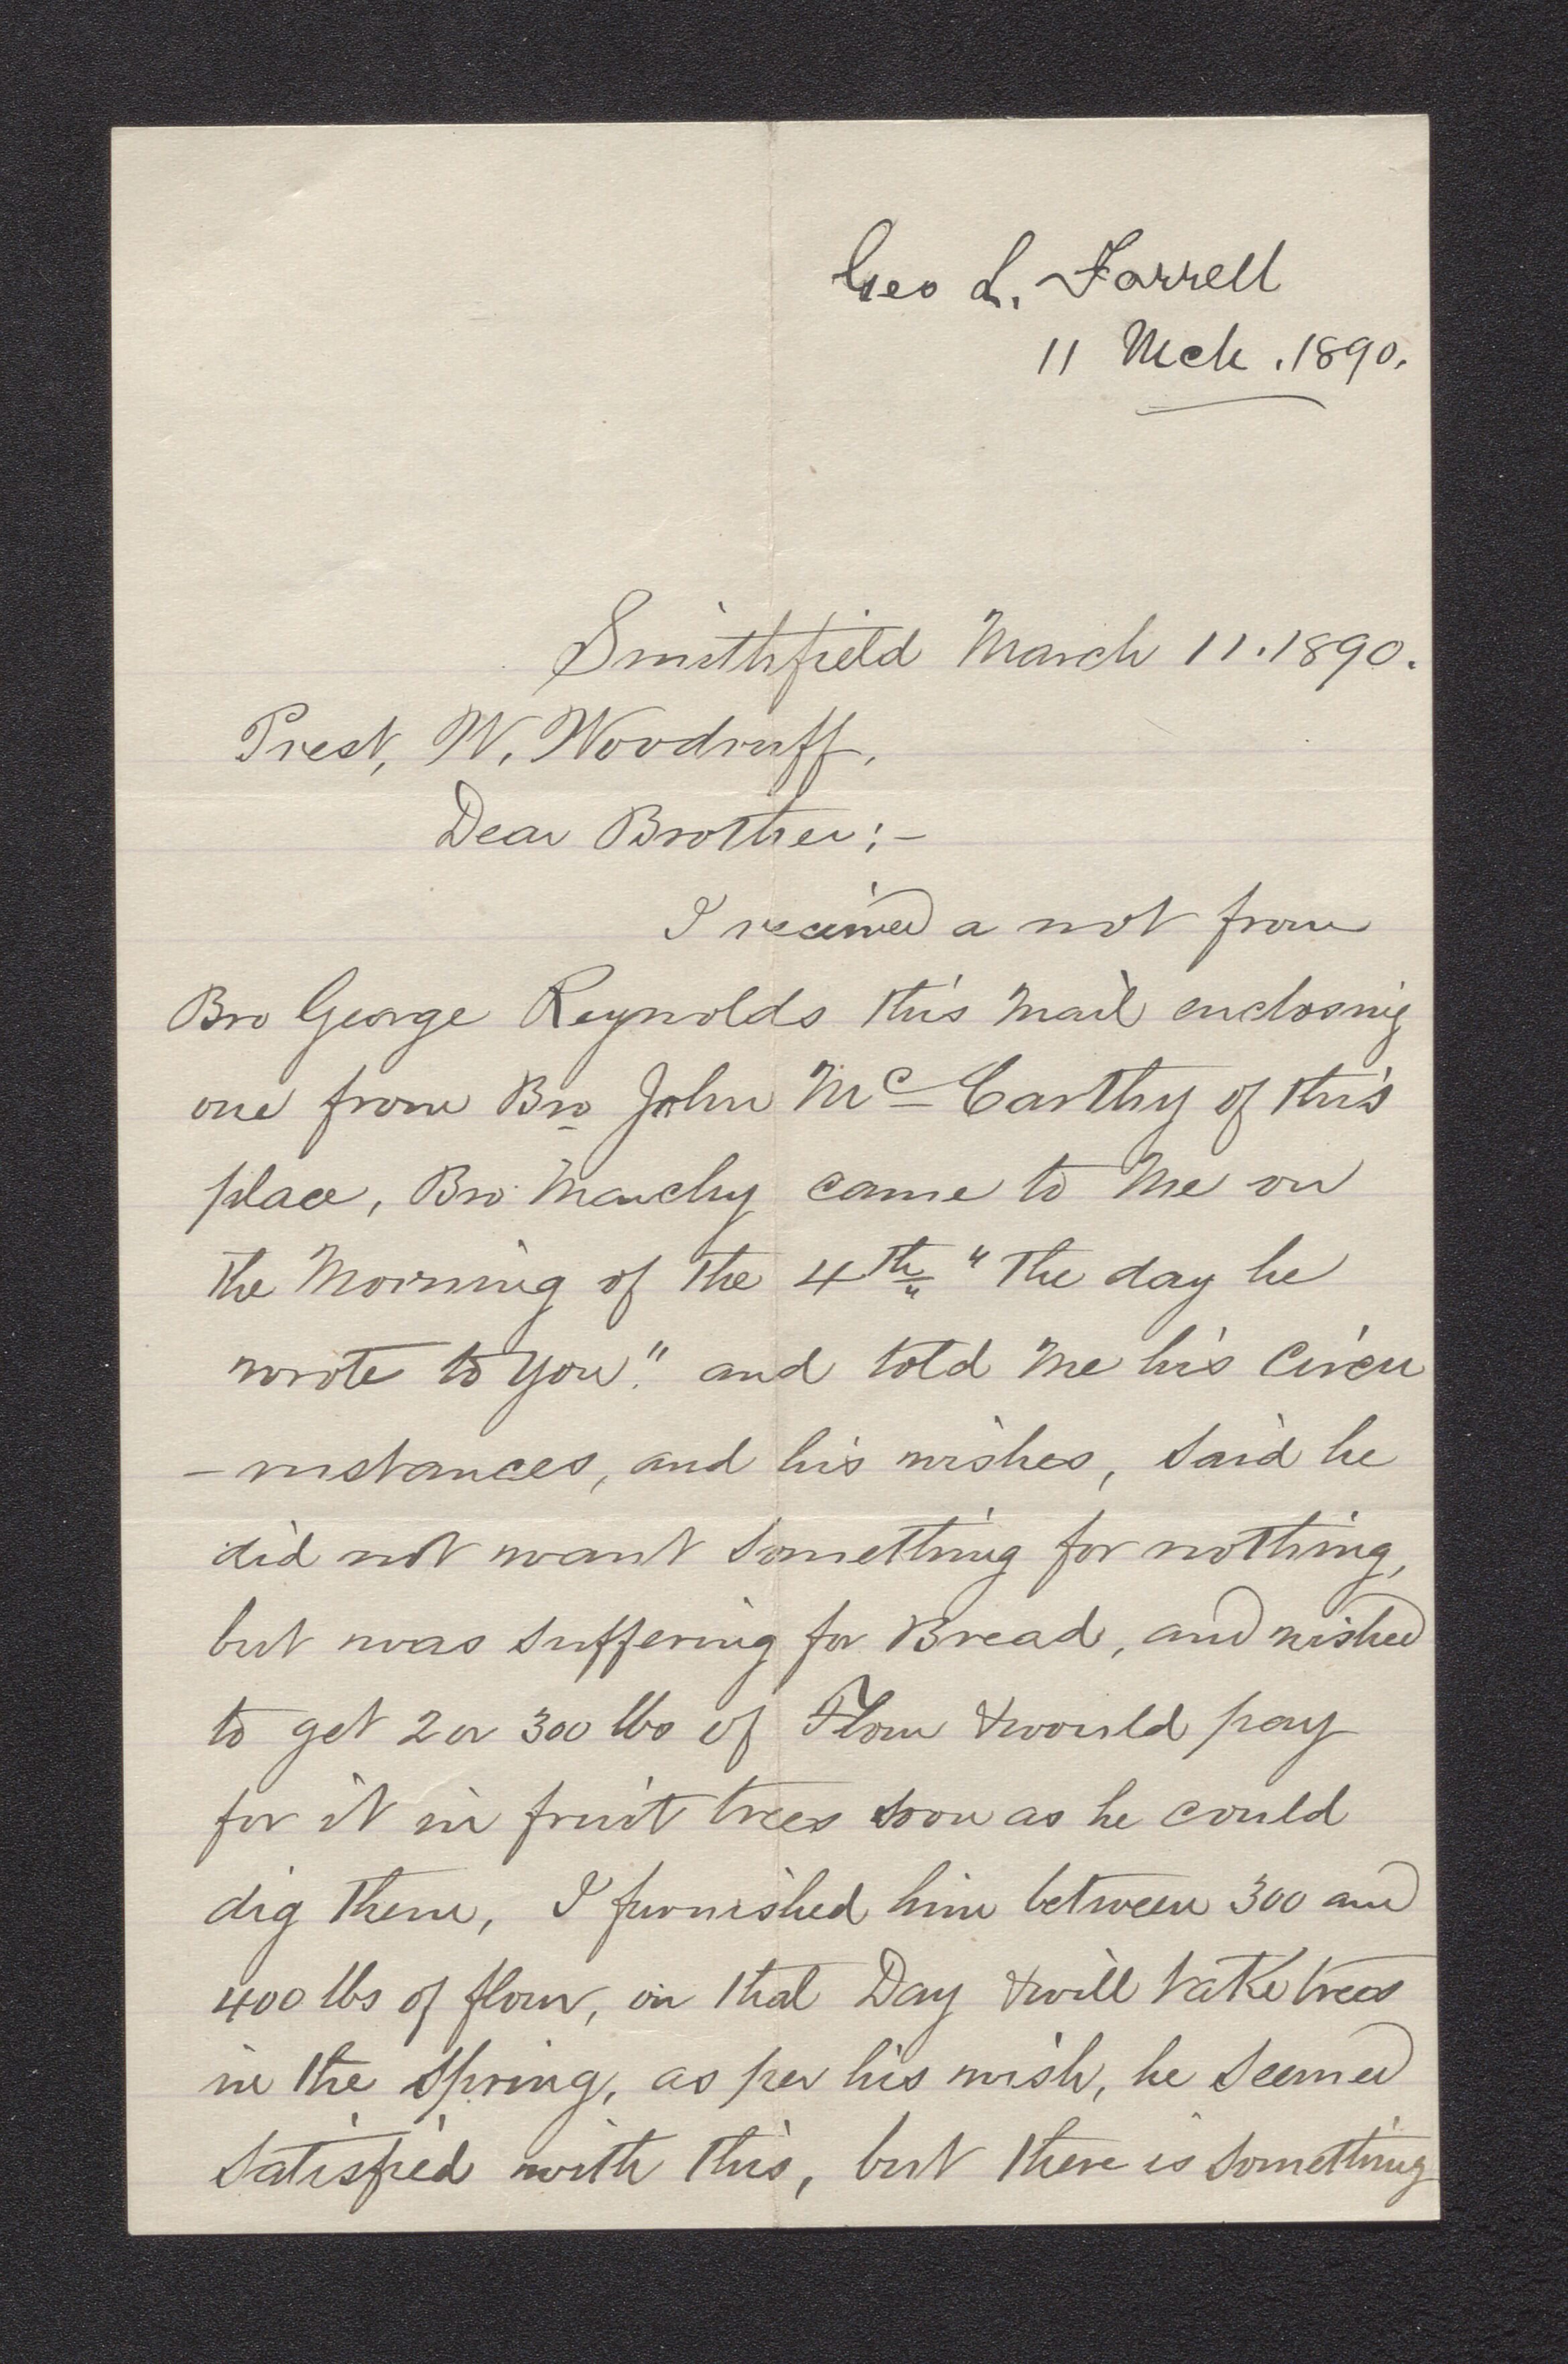 Geo L. Farrell
11 Mch. 1890.
Smithfield March 11. 1890.
Prest, W. Woodruff,
Dear Brother:-
I received a not from
Bro George Reynolds this Mail enclosing
one from Bro John Mc Carthy of this
place, Bro came to Me on
the Morning of the 4th "The day he
wrote to you." and told Me his Circu
-mstances, and his wishes, Said he
did not want Something for nothing,
but was Suffering for Bread, and wished
to get 2 or 300 lbs of Flour & would pay
for it in fruit trees soon as he could
dig them, I furnished him between 300 and
400 lbs of flour, on that Day & will take trees
in the Spring, as per his wish, he Seemed
Satisfied with this, but there is Something